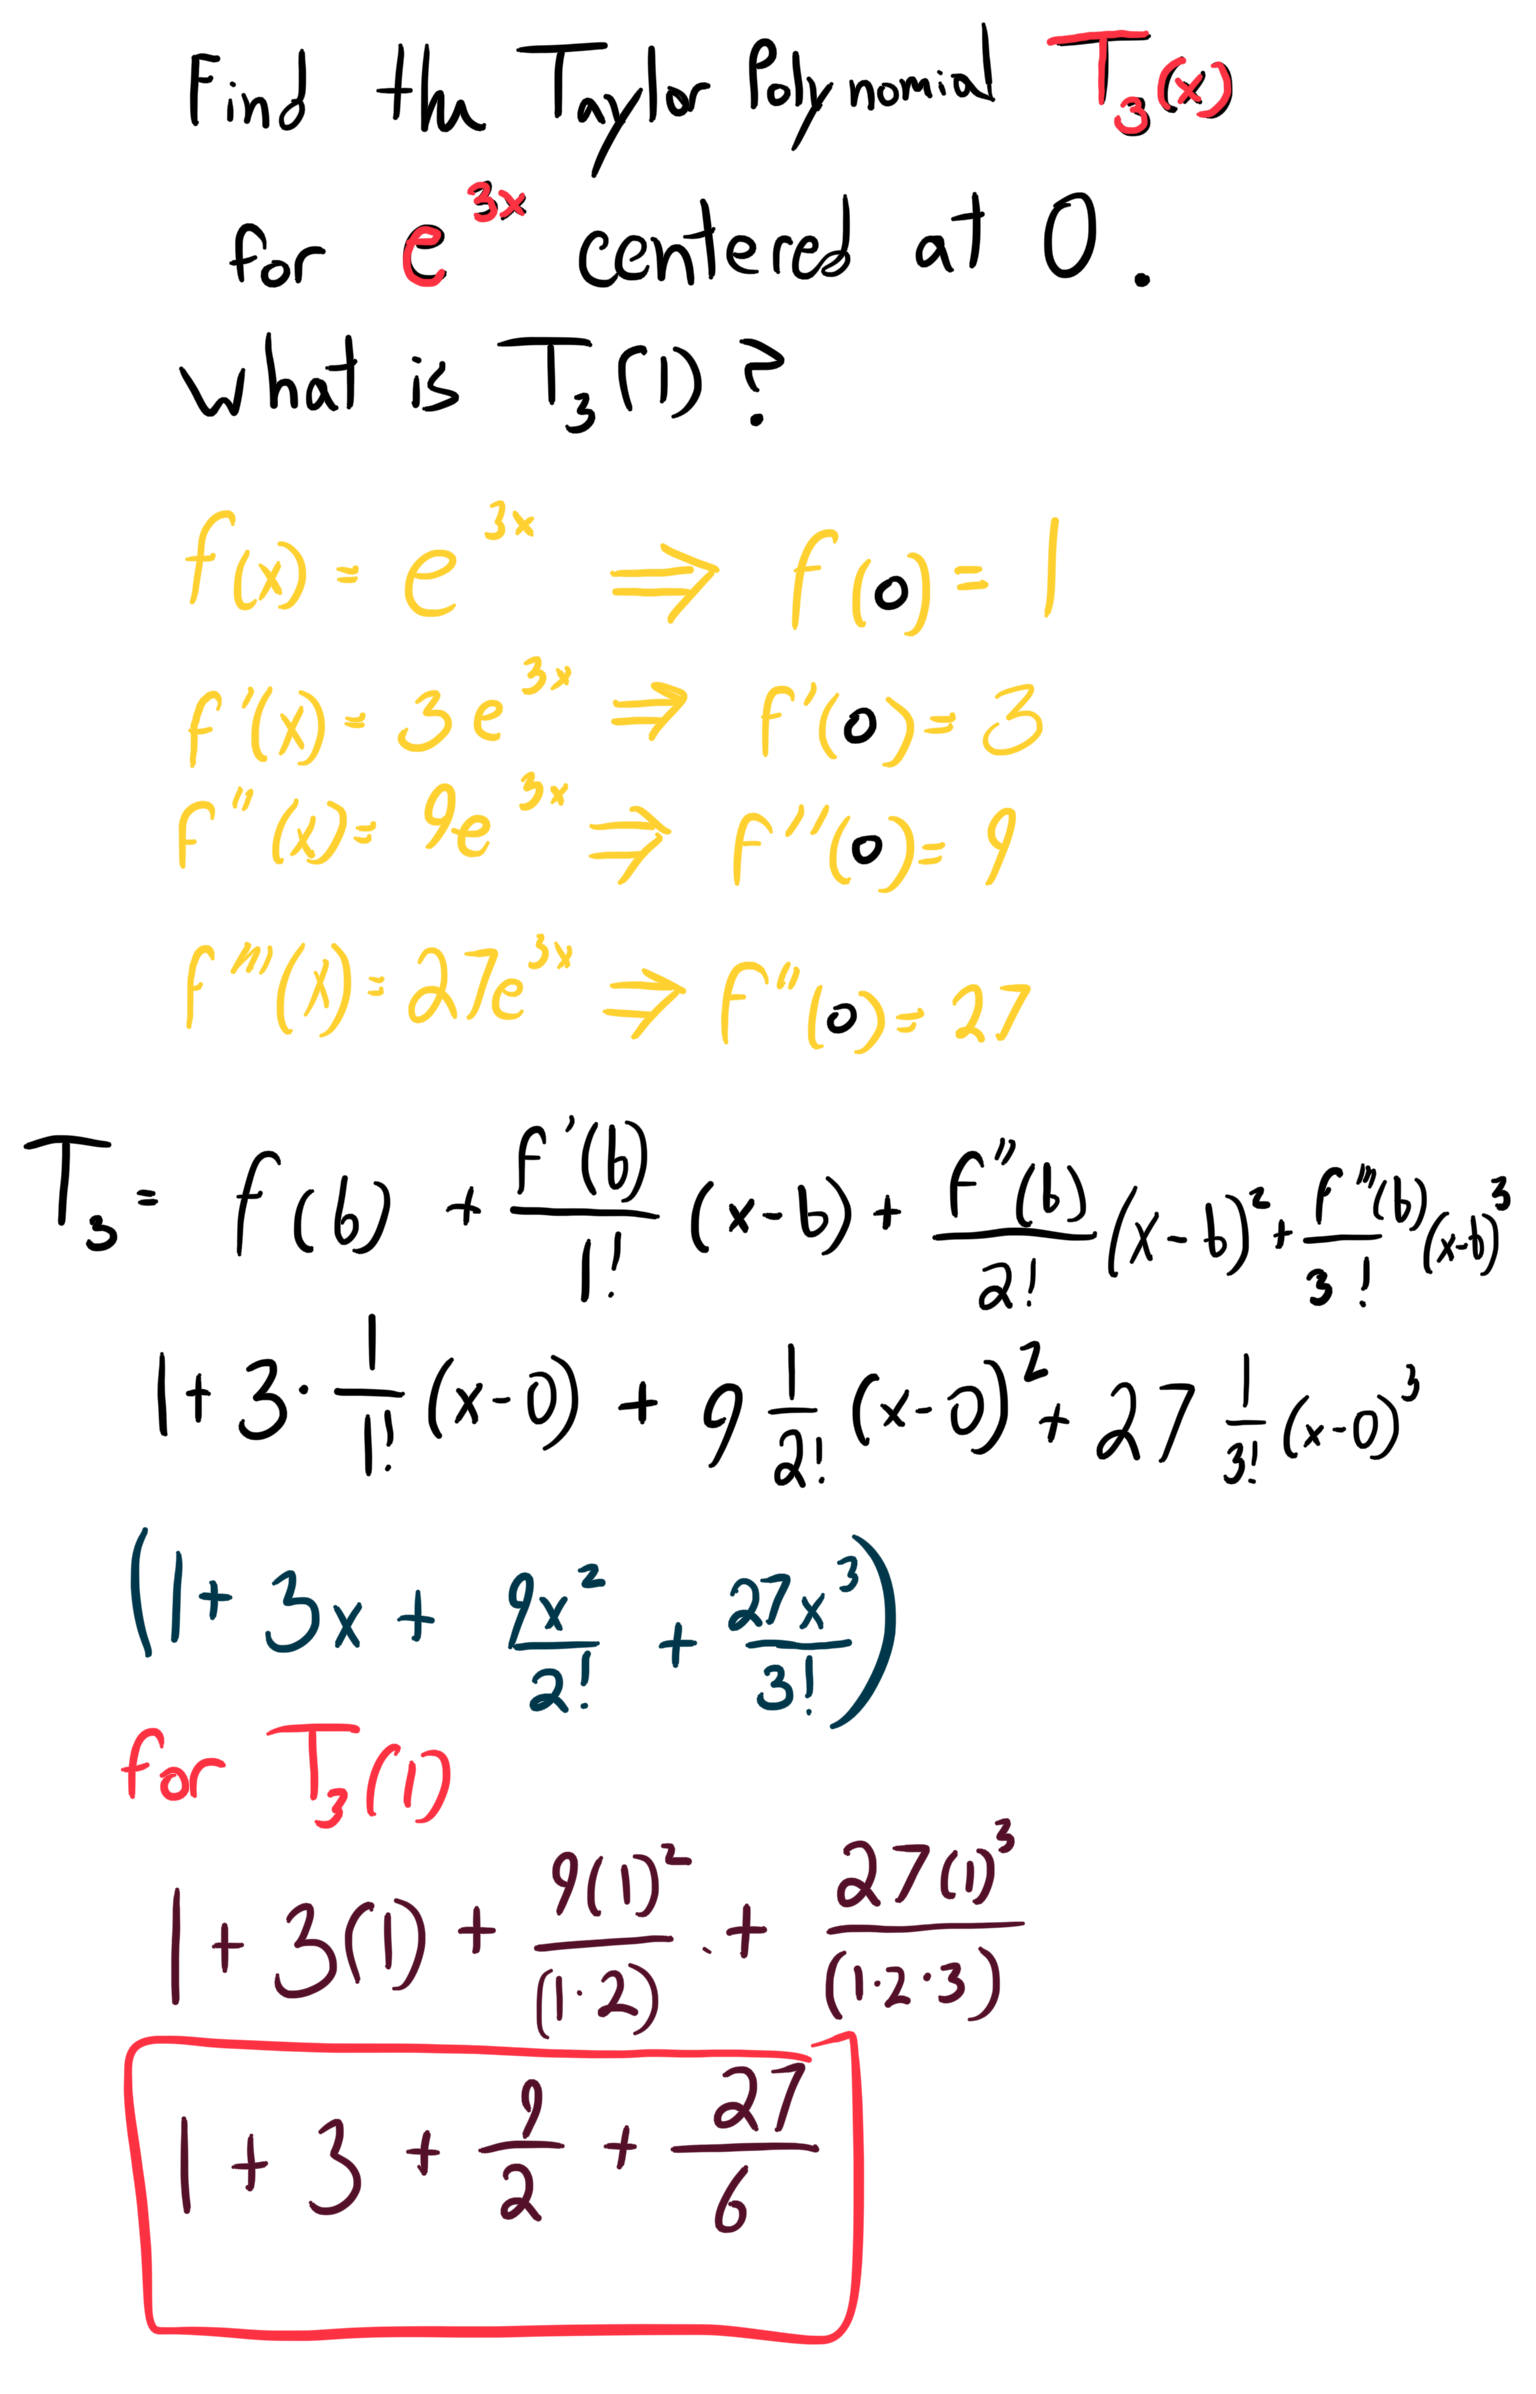 Find the Taylor Polynomial T₃(x)
for e³ˣ centered at 0.
what is T₃(1)?
f(x) = e³ˣ ⇒ f(0) = 1
f'(x) = 3e³ˣ ⇒ f'(0) = 3
f''(x) = 9e³ˣ ⇒ f''(0) = 9
f'''(x) = 27e³ˣ ⇒ f'''(0) = 27
T₃ = f(b) + f'(b)/1! (x-b) + f''(b)/2! (x-b)² + f'''(b)/3! (x-b)³
1 + 3 · 1/1! (x-0) + 9 1/2! (x-0)² + 27 1/3! (x-0)³
(1 + 3x + 9x²/2! + 27x³/3!)
for T₃(1)
1 + 3(1) + 9(1)²/(1·2) . + 27(1)³/(1·2·3)
1 + 3 + 9/2 + 27/6